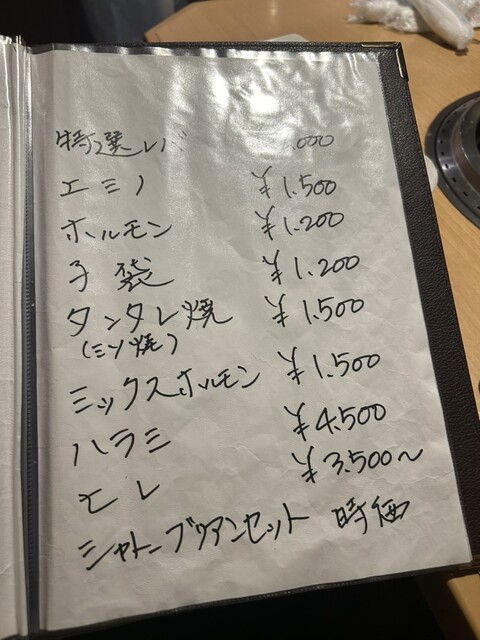 特選レバ
エミノ ¥1.500
ホルモン ¥1.200
子袋 ¥1.200
タンタレ焼 ¥1.500
(ミソ焼)
ミックスホルモン ¥1.500
ハラミ ¥4.500
ヒレ ¥3.500～
シャトーブリアンセット 時価